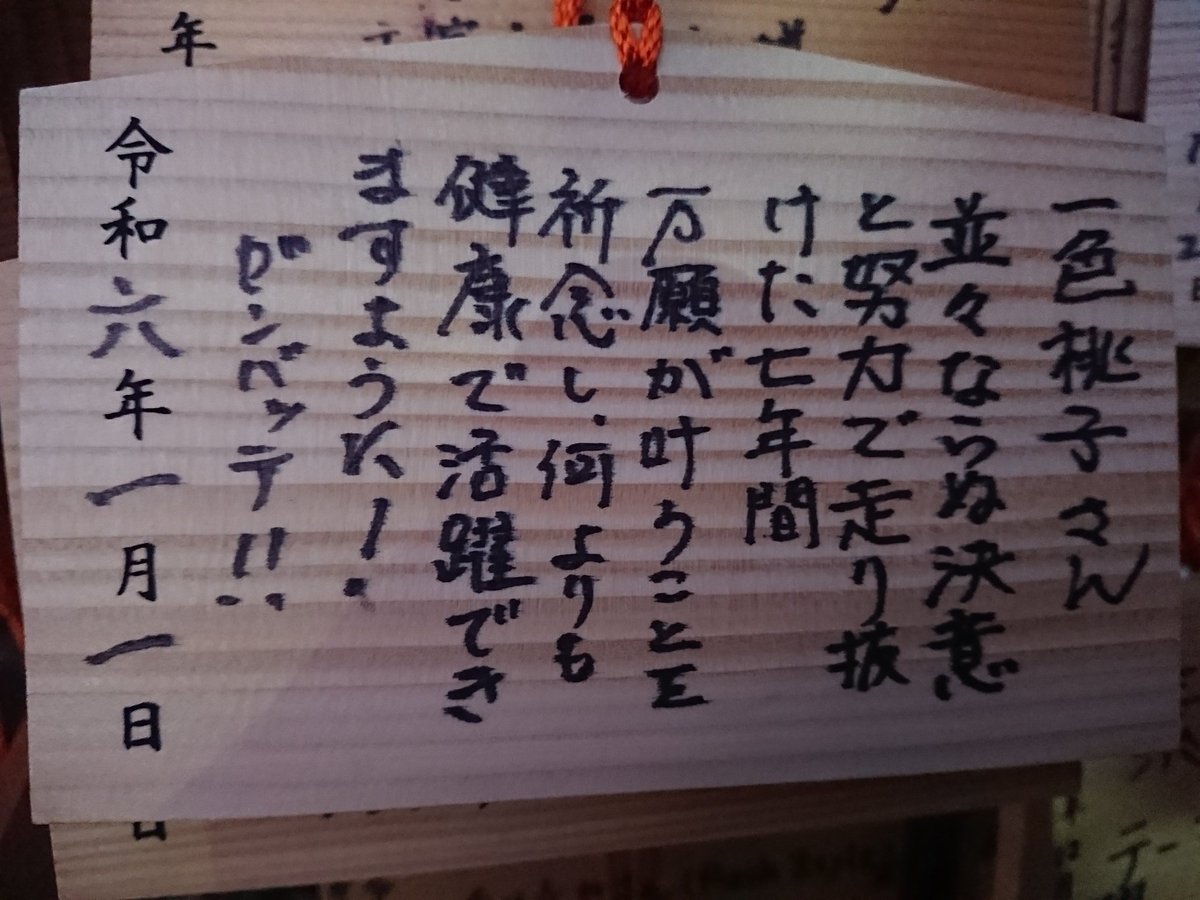 一色桃子さん
並々ならぬ決意
と努力で走り抜
けた七年間
万願が叶うことを
祈念し、何よりも
健康で活躍でき
ますように!
ガンバッテ!!
令和六年一月一日
年
日
テー